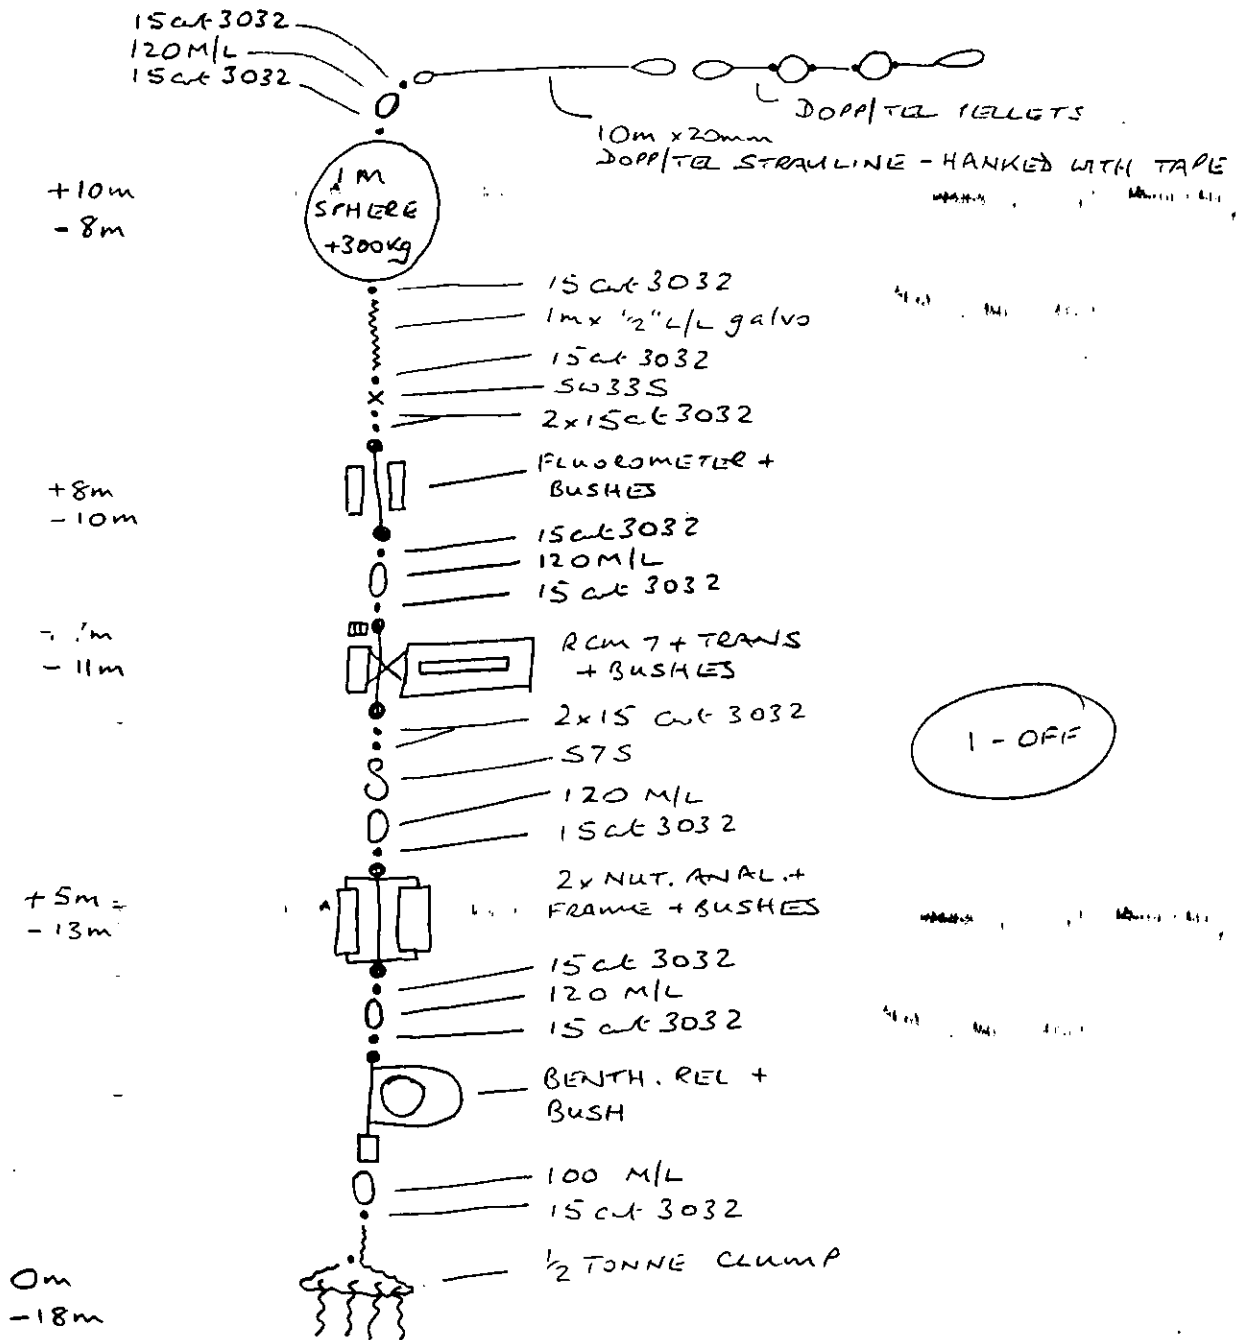 15 cut 3032
120 M/L
15 cut 3032
DOPP/TEL PELLETS
10m x 20mm
DOPP/TEL STRAYLINE - HANKED WITH TAPE
1 M
SPHERE
+300kg
+10m
-8m
15 cut 3032
1m x 1/2" L/L galvo
15 cut 3032
SW33S
2 x 15 cut 3032
FLUOROMETER +
BUSHES
+8m
-10m
15 cut 3032
120 M/L
15 cut 3032
RCM 7 + TRANS
+ BUSHES
-11m
2 x 15 cut 3032
S7S
120 M/L
15 cut 3032
1 - OFF
2 x NUT. ANAL. +
FRAME + BUSHES
+5m
-13m
15 cut 3032
120 M/L
15 cut 3032
BENTH. REL +
BUSH
100 M/L
15 cut 3032
1/2 TONNE CLUMP
0m
-18m